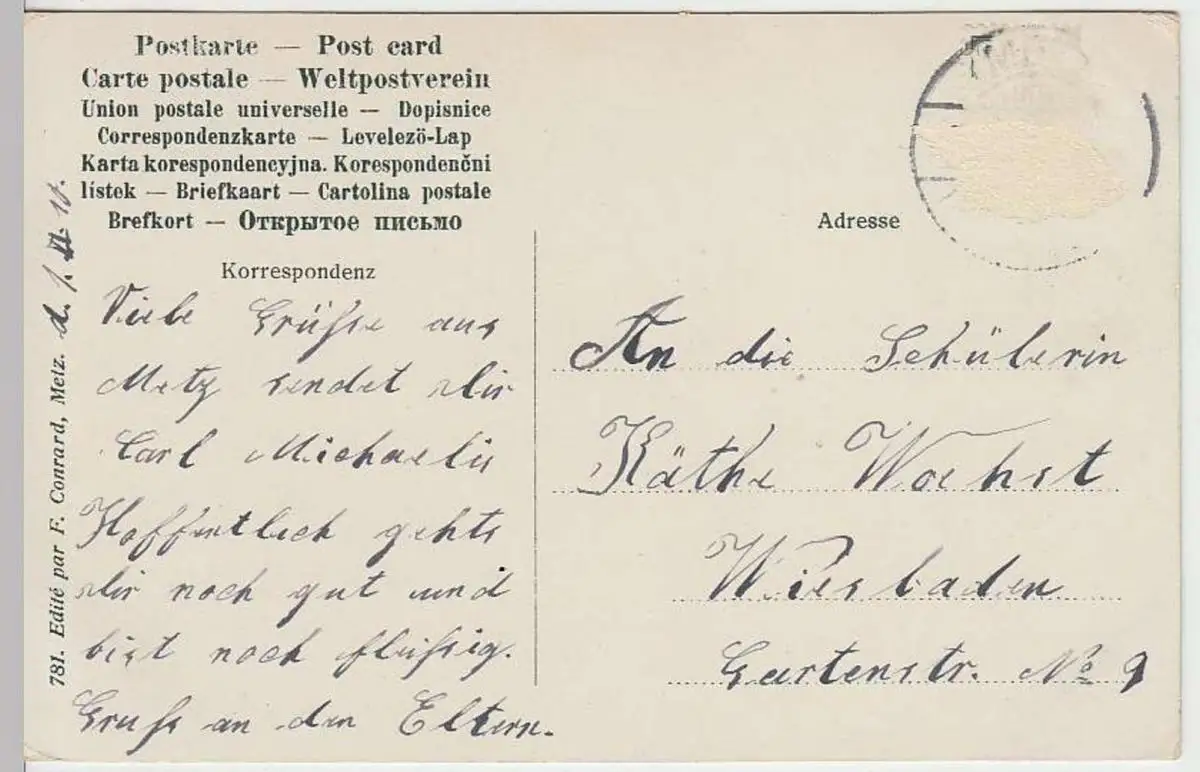 Postkarte — Post card
Carte postale — Weltpostverein
Union postale universelle — Dopisnice
Correspondenzkarte — Levelezö-Lap
Karta korespondencyjna. Korespondenčni
lístek — Briefkaart — Cartolina postale
Brefkort — Открытое письмо
Korrespondenz
Viele Grüsse aus
Metz sendet dir
Carl Michaelis
Hoffentlich gehts
dir noch gut und
bist noch fleissig.
Gruss an den Eltern.
781. Edité par F. Conrard, Metz.
Adresse
An die Schülerin
Käthe
Wiesbaden
Gartenstr. No 9